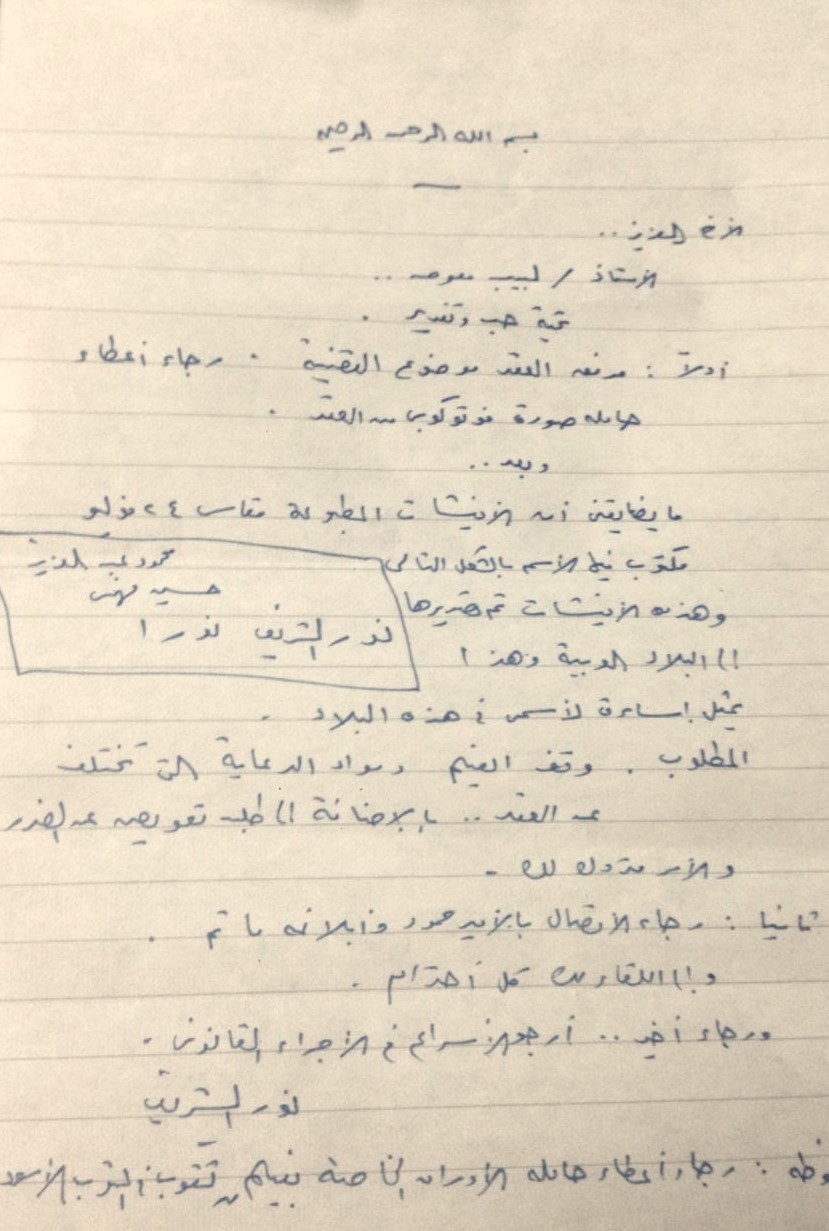 بسم الله الرحمن الرحيم
الأخ العزيز ..
الأستاذ / لبيب معوض ..
تحية حب وتقدير .
أولاً : مرفق العقد موضوع القضية . رجاء أعطاء
حامله صورة فوتوكوبى من العقد .
وبعد ..
ما يضايقنى أن الأفيشات المطبوعة مقاس ٢٤ فولو
مكتوب فيها الأسم بالشكل التالى
محمود عبد العزيز
حسين فهمى
نور الشريف نورا
وهذه الأفيشات تم تصديرها
إلى البلاد العربية وهذا
يمثل إساءة لأسمى فى هذه البلاد .
المطلوب . وقف الفيلم ومواد الدعاية التى تختلف
عن العقد .. بالإضافة إلى طلب تعويض عن الضرر
والأمر متروك لك .
ثانيا : رجاء الأتصال بالأمير حمود وأبلاغه ما تم .
وإلى اللقاء لك كل أحترام .
ورجاء أخير .. أرجو الأسراع فى الأجراء القانونى .
نور الشريف
رجاء أعطاء حامله الأوراق الخاصة بفيلم ثقوب فى الثوب الأسود